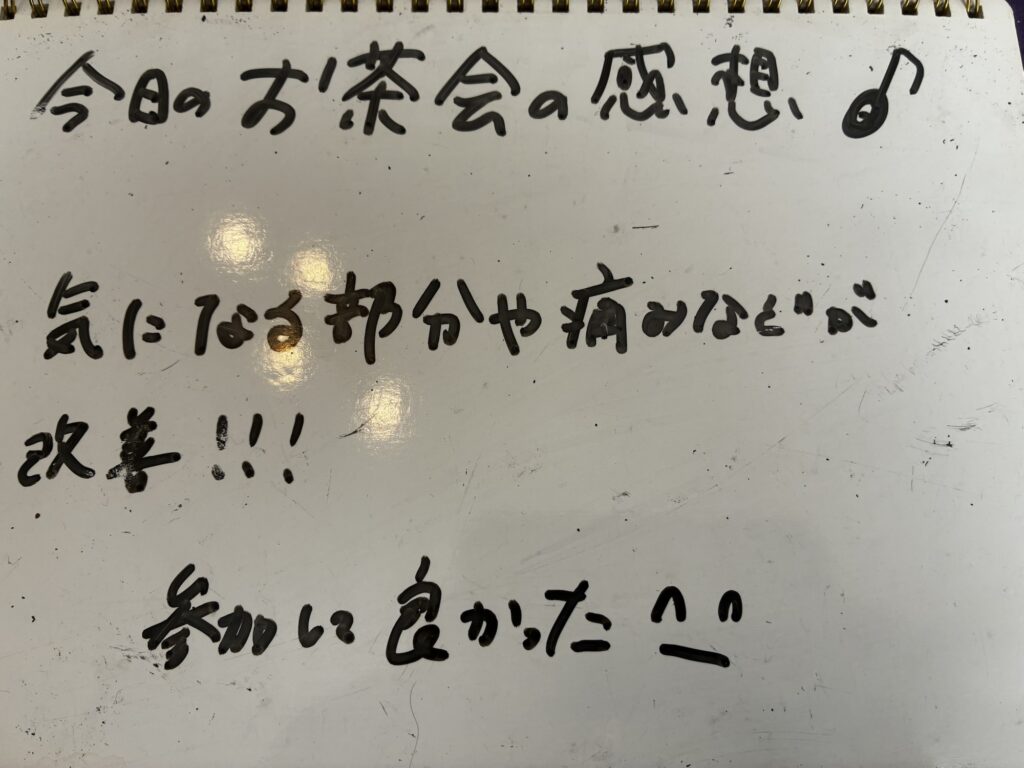 今日のお茶会の感想♪
気になる部分や痛みなどが
改善!!!
参加して良かった^_^